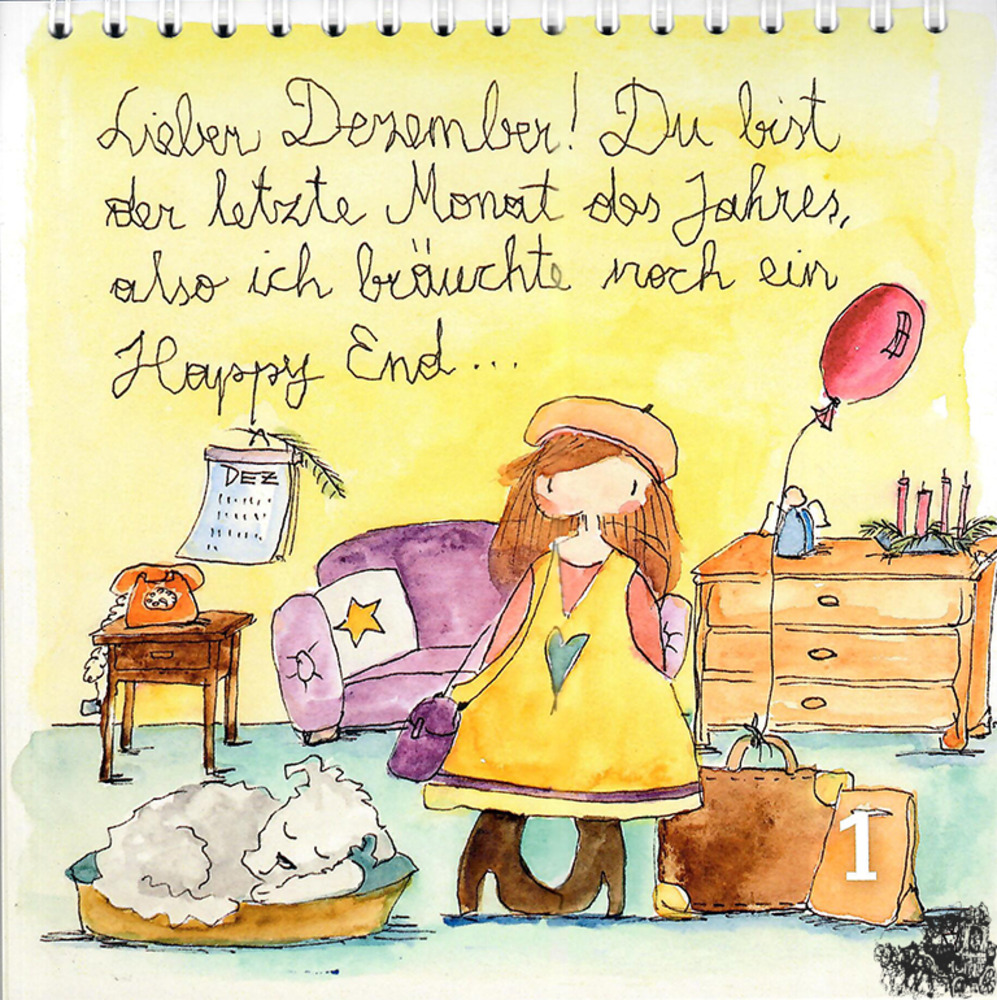 Lieber Dezember! Du bist
der letzte Monat des Jahres,
also ich bräuchte noch ein
Happy End...
DEZ
1